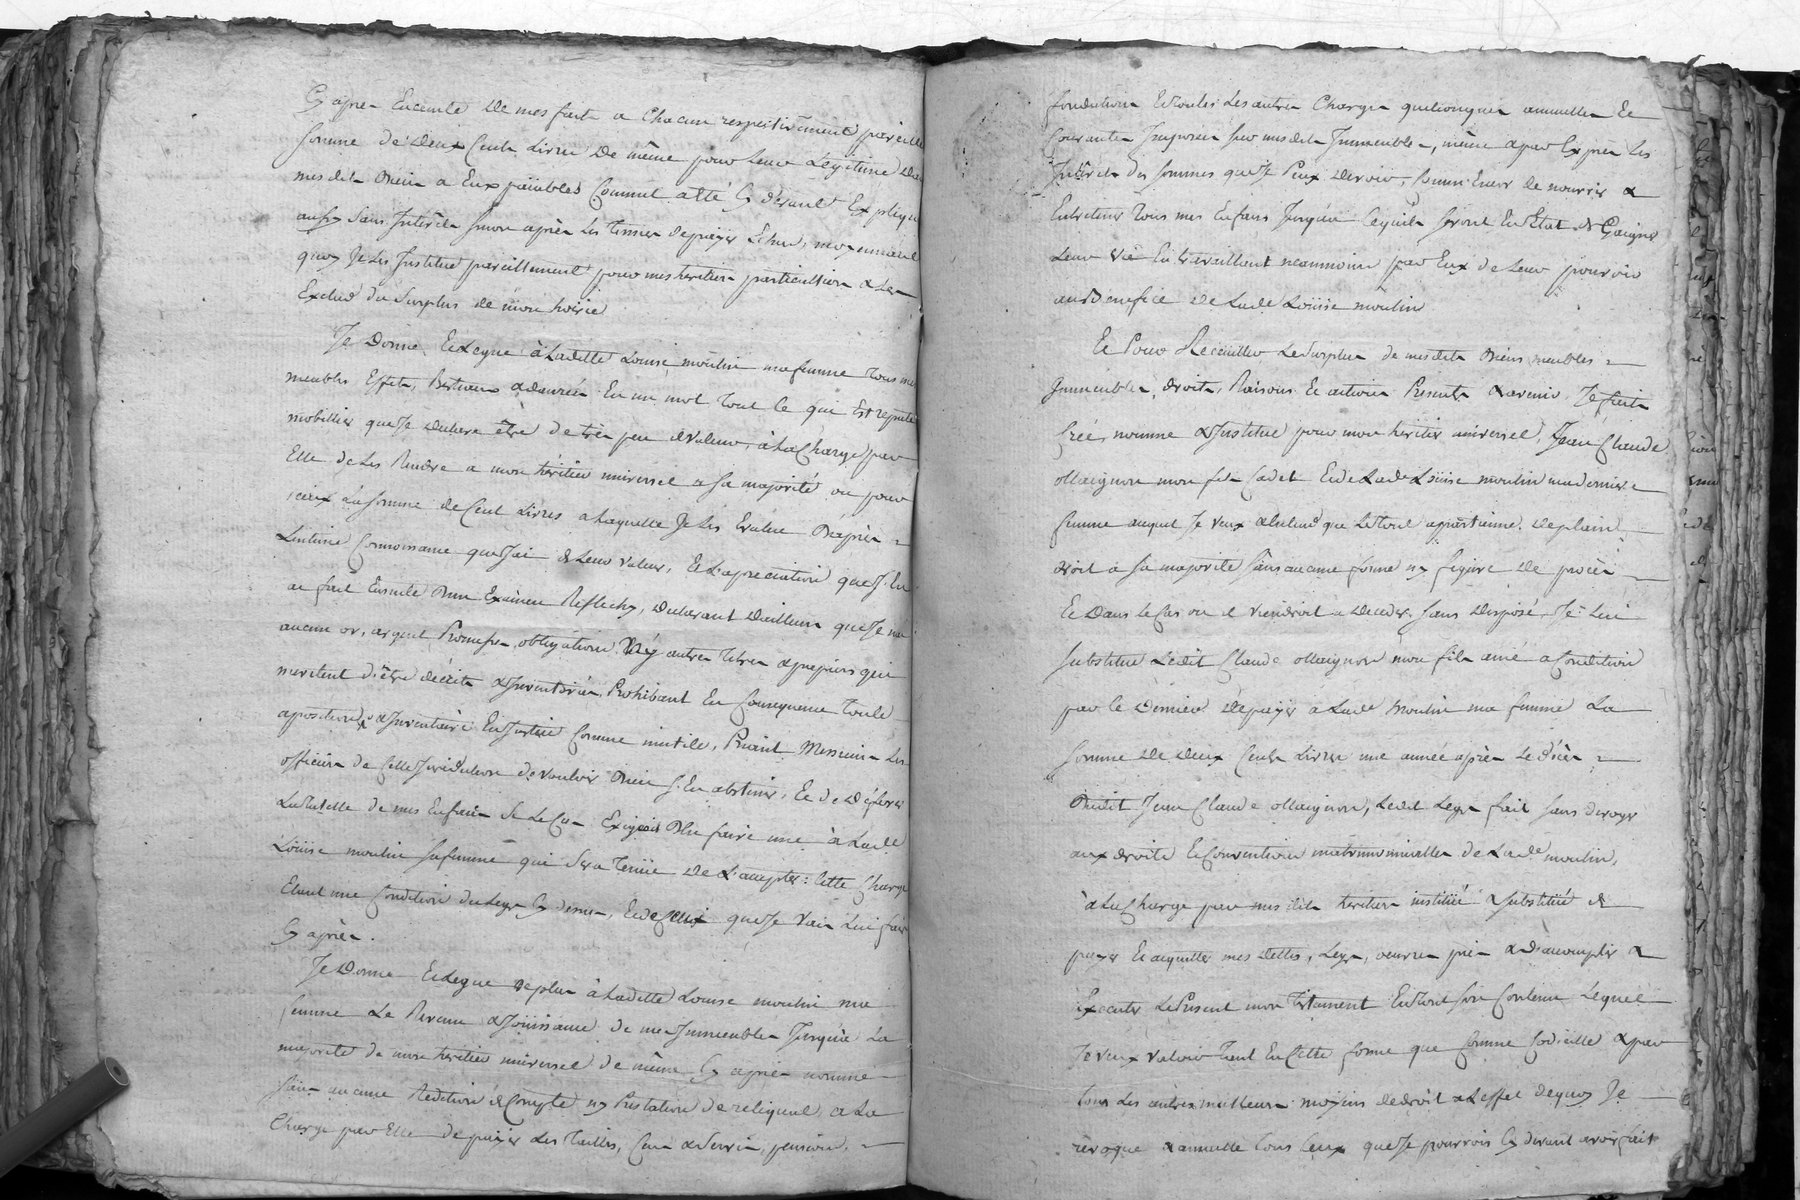 Cy apres Enceinte de mes fait a Chacun respectivement pareille
somme de deux Cents Livres de même pour Leur Légitime des
mesdits Biens a Eux païables Comme a été Cy devant Expliqué
aussy sans Intérêts sinon après Les Termes de païer Echus, moyennant
quoy Je Les Institue pareillement pour mes heritiers particulliers & Les
Exclud du surplus de mon hoirie
Je Donne Et Legue à Ladette Louise moulin ma femme Tous mes
meubles Effets, Bestiaux & denrées En un mot Tout Ce qui Est réputé
mobillier que Je declare être de très peu de valeur, à La Charge par
Elle de Les Rendre a mon héritier universel a sa majorité ou pour
iceux La somme de Cent Livres a Laquelle Je Les Evalue D'après
L'intime Connoissance que J'ai de Leur valeur, Et L'apreciation que J'en
ai fait Ensuite D'un Examen Reflechy, declarant D'ailleurs que Je n'ai
aucun or, argent Promesses, obligations Ny autres titres & papiers qui
meritent d'être décrits & Inventoriés, Prohibant En Consequence Toute
aposition & Inventaire En Justice Comme inutile, Priant Messieurs Les
officiers de Cette Juridiction de vouloir Bien s'En abstenir, Et de Déférer
La Tutelle de mes Enfans Si Le Cas Exigeoit D'En faire une à Lade
Loüise moulin sa femme qui Sera Tenüe de L'accepter: Cette Charge
Etant une Condition du Legs Cy dessus, Et de Celui que Je vais Lui faire
Cy après.
Je Donne Et Legue de plus à Ladette Louise moulin ma
femme Le Revenu & Joüissance de mes Immeubles Jusqu'à La
majorité de mon heritier universel de même Cy après nommé
sans aucune Redition de Compte ny Prestation de reliquat, a La
Charge par Elle de païer Les Tailles, Cens & Servis, pensions,
fondations Et Toutes Les autres Charges quelconques annuelles Et
Courantes Imposées sur mesdits Immeubles, même & par Exprès Les
Intérêts des sommes que Je Peux devoir, Comm'Encor de nourrir &
Entretenir Tous mes Enfans Jusqu'à Ce qu'ils seront En Etat de Gaigner
Leur vie En travaillant neanmoins par Eux de Leur pouvoir
au Benefice de Lade Loüise moulin
Et Pour Recüeillir Le surplus de mesdits Biens meubles
Immeubles, droits, Raisons Et actions Presents & avenir Je fais
Créé, nomme & Institue pour mon heritier universel, Jean Claude
Maignon mon fils Cadet Et de Lade Loüise moulin ma derniere
femme auquel Je veux & Entend que Le Tout apartienne de plein
droit a sa majorité sans aucune forme ny figure de procès
Et Dans Le Cas ou il viendroit a deceder, sans disposé, Je Lui
substitue Ledit Claude Maignon mon fils ainé a Condition
par Ce Dernier de païer à Lade Moulin ma femme La
somme de Deux Cents Livres une année après Le décès
Dudit Jean Claude Maignon, Ledit Legs fait sans deroger
aux droits Et Conventions matrimonialles de Lade moulin,
à La Charge par mesdits heritiers institüé & substitüé de
païer Et acquitter mes Dettes, Legs, oeuvres pies & d'accomplir &
Executer Le Present mon Testament En Tout son Contenu Lequel
Je veux valoir Tant En Cette forme que Comme Codicille & par
Tous Les autres meilleurs moyens de droit a L'effet de quoy Je
révoque & annulle tous Ceux que Je pourrois Cy devant avoir fait